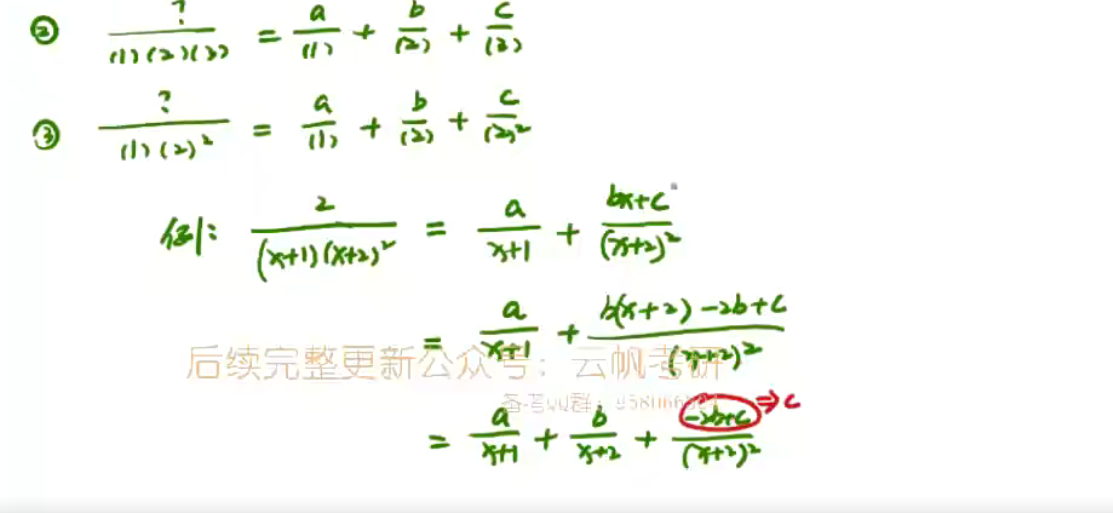 ② ?/((1)(2)(3)) = a/(1) + b/(2) + c/(3)
③ ?/((1)(2)²) = a/(1) + b/(2) + c/(2)²
例: 2/((x+1)(x+2)²) = a/(x+1) + (bx+c)/(x+2)²
= a/(x+1) + (b(x+2)-2b+c)/(x+2)²
后续完整更新公众号：云帆考研
备考QQ群：
= a/(x+1) + b/(x+2) + (-2b+c)/(x+2)² ⇒ c